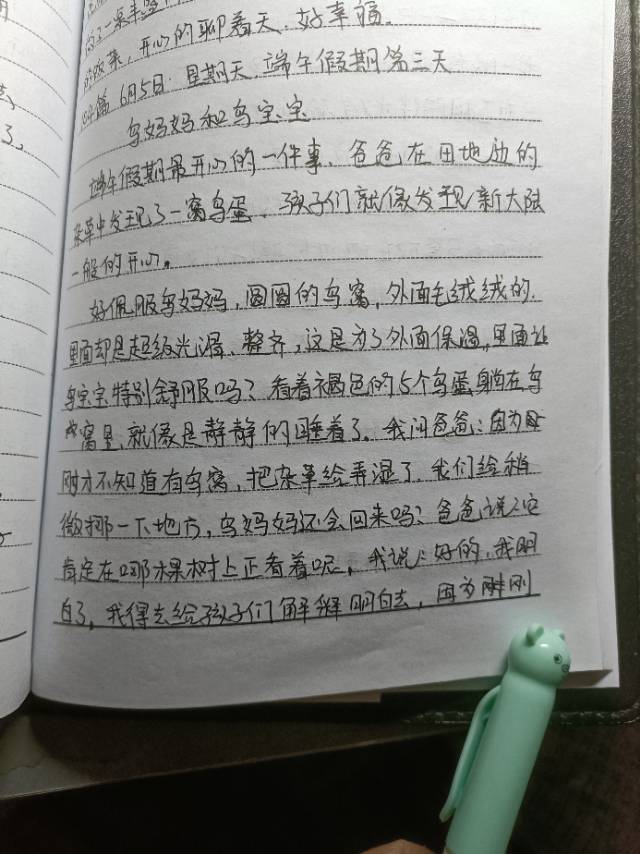 的了一桌丰盛
的饭菜，开心的聊着天，好幸福。
6月5日 星期天 端午假期第三天
鸟妈妈和鸟宝宝
端午假期最开心的一件事，爸爸在田地边的
杂草中发现了一窝鸟蛋，孩子们就像发现新大陆
一般的开心。
好佩服鸟妈妈，圆圆的鸟窝，外面毛绒绒的，
里面却是超级光滑、整齐，这是为了外面保温，里面让
鸟宝宝特别舒服吗？看着褐色的5个鸟蛋躺在鸟
窝里，就像是静静的睡着了。我问爸爸：因为
刚才不知道有鸟窝，把杂草给弄湿了，我们给稍
微挪一下地方，鸟妈妈还会回来吗？爸爸说：它
肯定在哪棵树上正看着呢，我说：好的，我明
白了，我得去给孩子们解释明白去，因为刚刚